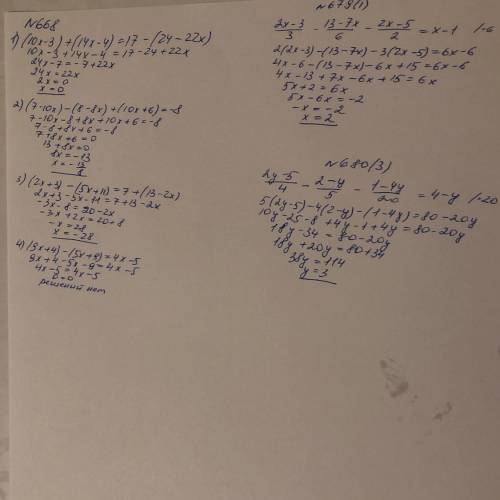 N668
1) (10x-3)+(14x-4)=17-(24-22x)
10x-3+14x-4=17-24+22x
24x-7=-7+22x
24x=22x
2x=0
x=0
2) (7-10x)-(8-8x)+(10x+6)=-8
7-10x-8+8x+10x+6=-8
7-8+8x+6=-8
7+8x+6=0
13+8x=0
8x=-13
x=-13/8
3) (2x+3)-(5x+11)=7+(13-2x)
2x+3-5x-11=7+13-2x
-3x-8=20-2x
-3x+2x=20+8
-x=28
x=-28
4) (9x+4)-(5x+9)=4x-5
9x+4-5x-9=4x-5
4x-5=4x-5
0=0
решений нет
N679(1)
(2x-3)/3 - (13-7x)/6 - (2x-5)/2 = x-1 /·6
2(2x-3)-(13-7x)-3(2x-5)=6x-6
4x-6-(13-7x)-6x+15=6x-6
4x-13+7x-6x+15=6x
5x+2=6x
5x-6x=-2
-x=-2
x=2
N680(3)
(2y-5)/4 - (2-y)/5 - (1-4y)/20 = 4-y /·20
5(2y-5)-4(2-y)-(1-4y)=80-20y
10y-25-8+4y-1+4y=80-20y
18y-34=80-20y
18y+20y=80+34
38y=114
y=3